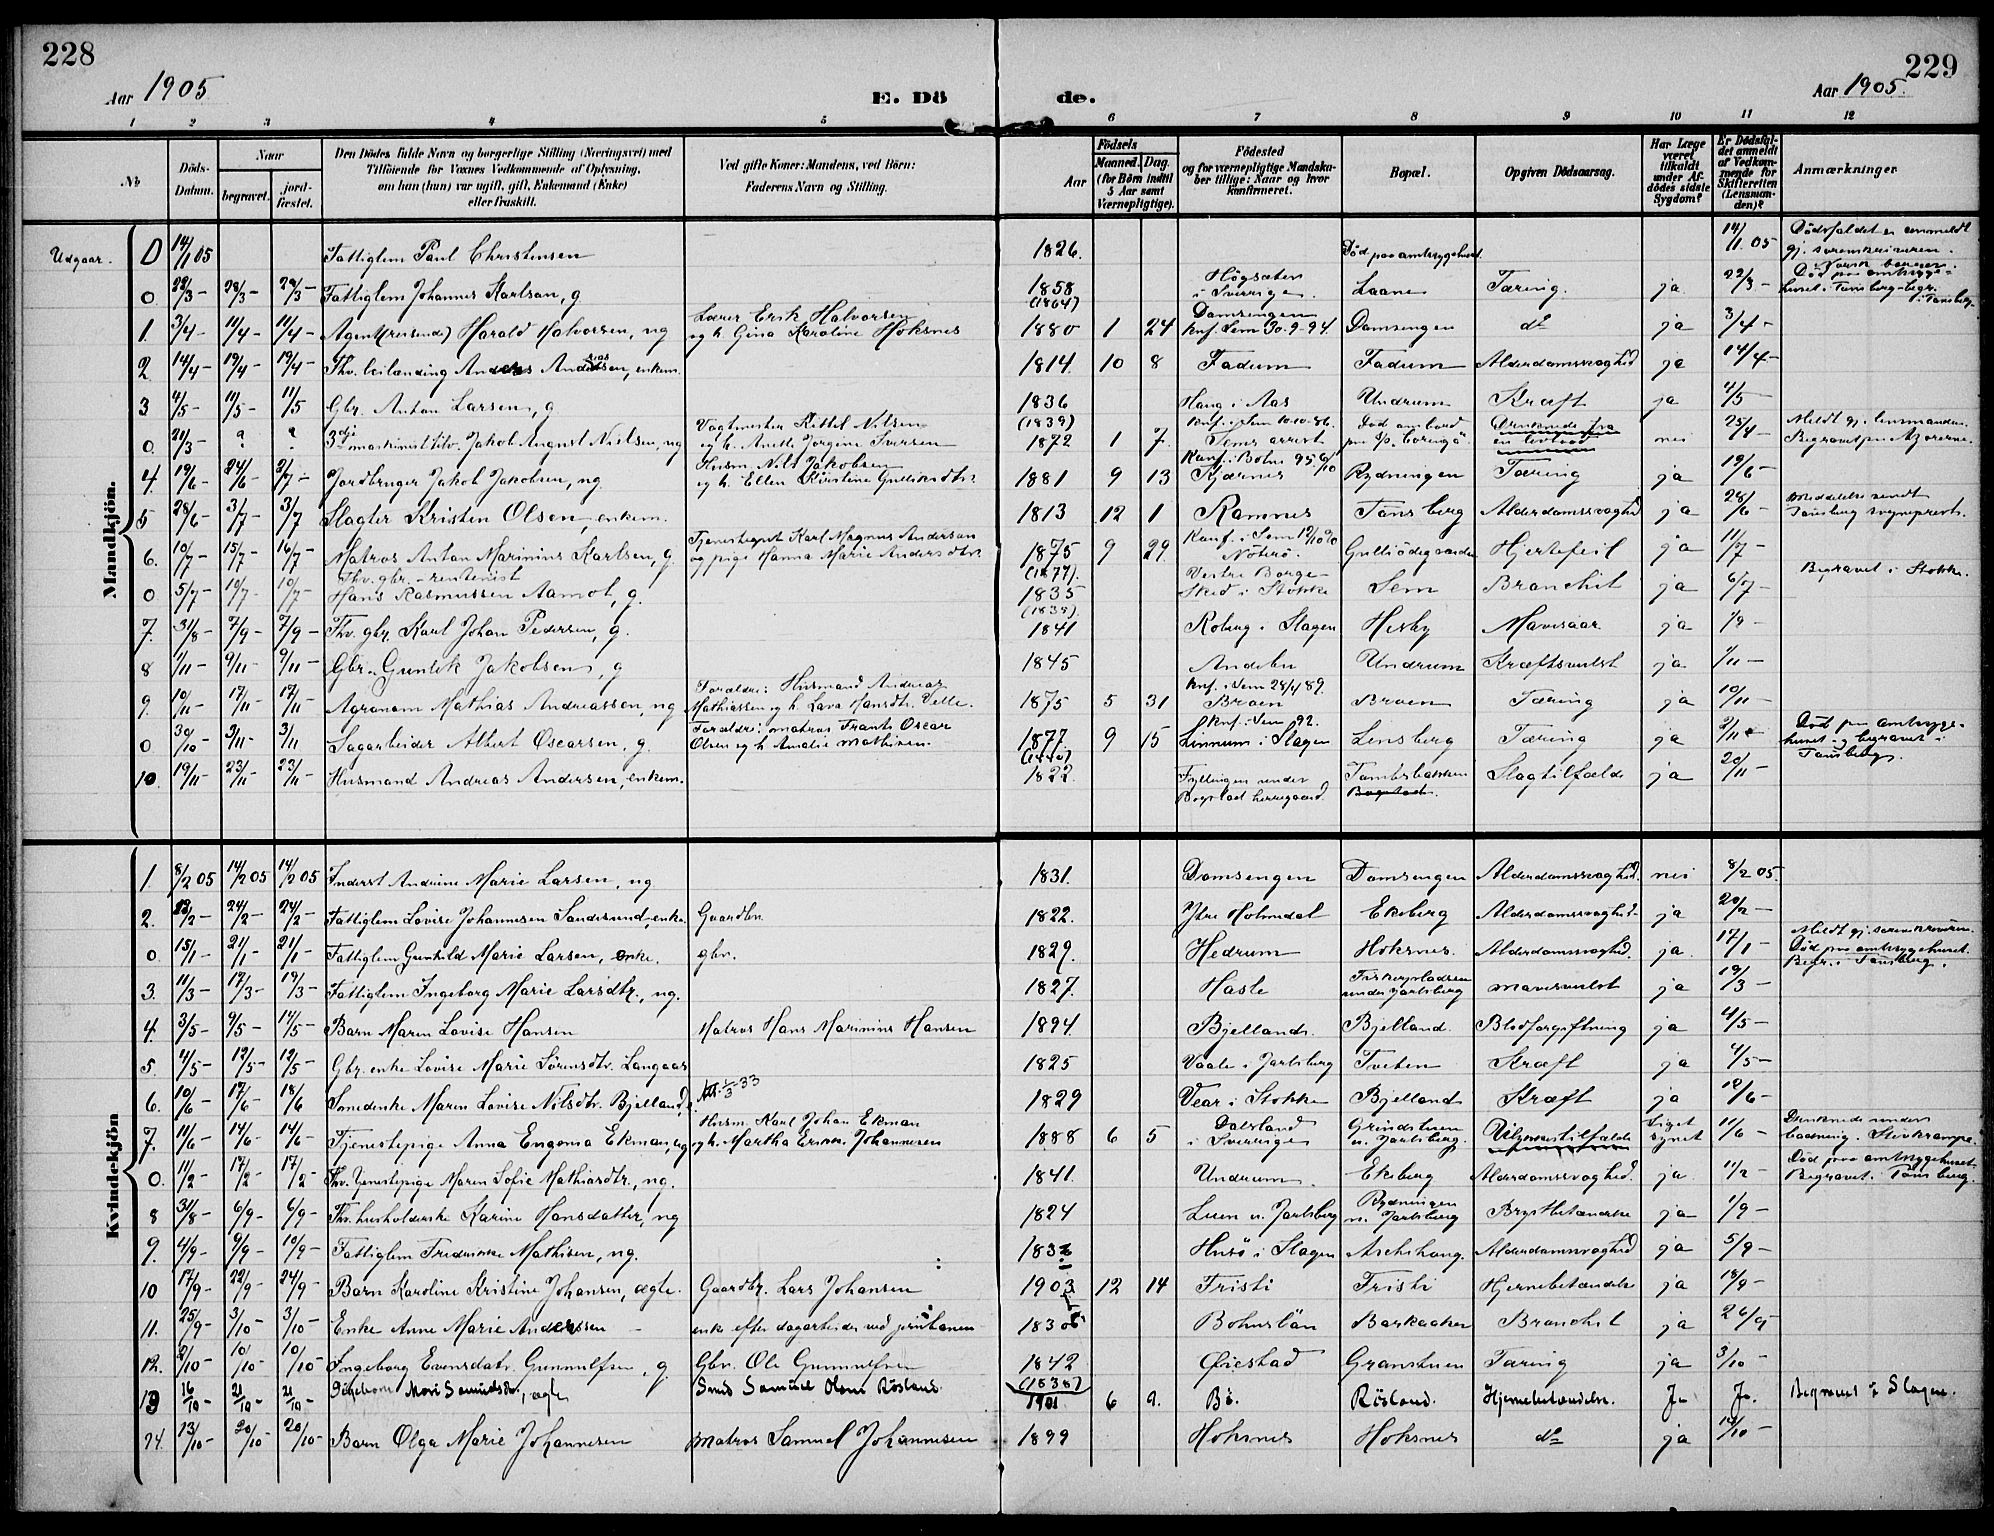 228
229
Aar 1905
E. Dö
de.
Aar 1905.
1 2 3 4 5 6 7 8 9 10 11 12
No
Döds-Datum.
Naar
begravet.
jord-fæstet.
Den Dödes fulde Navn og borgerlige Stilling (Næringsvei) med
Tilföiende for Voxnes Vedkommende af Oplysning,
om han (hun) var ugift, gift, Enkemand (Enke)
eller fraskilt.
Ved gifte Koner: Mandens, ved Börn:
Faderens Navn og Stilling.
Födsels
Aar
Maaned. Dag.
(for Börn indtil 5 Aar samt Værnepligtige).
Födested
og for værnepligtige Mandskaber tillige: Naar og hvor konfirmeret.
Bopæl.
Opgiven Dödsaarsag.
Har Læge været tilkaldt under Afdödes sidste Sygdom?
Er Dödsfaldet anmeldt af Vedkommende for Skifteretten (Lensmanden)?
Anmærkninger
Mandkjön.
Udgaar. 0 14/1 05 Fattiglem Paul Christensen 1826. Död paa amtssygehuset. 14/1 05 Dödsfaldet er anmeldt gj. sorenskriveren.
0 22/3 – 28/3 – 28/3 – Fattiglem Johannes Karlsen, g 1858 (1864) Högsäter i Sverrige. Laane Tæring. ja 22/3 – Död paa amtssygehuset i Tønsberg – begr. i Tønsberg
1. 3/4 – 11/4 – 11/4 – Agent (reisende) Harald Halvorsen, ug Lærer Erik Halvorsen og h. Gina Karoline Hoksnes 1880 1 24 Damsengen knf. Sem 30-9-94. Damsengen do ja 3/4 –
2 14/4 – 19/4 – 19/4 – Fhv. leilænding Anders Andersen, enkem. 1814. 10 8 Fadum Fadum Alderdomssvaghed ja 14/4 –
3 4/5 – 11/5 – 11/5 Gbr. Anton Larsen, g 1836 (1839) Haug i Aas Undrum Kræft ja 4/5 –
0 21/3 – ? ? 3die maskinist titv. Jakob August Nielsen, ug Vagtmester Kittil Nilsen og h. Anette Jørgine Iversen 1872 1 7. Knf. i Sem 10-10-86. Tems arrest Död ombord Druknede fra en livbaad nei 25/4 – Meldt gj. lensmanden. Begravet paa Azorerne.
4. 19/6 – 24/6 – 2/7 – Jordbruger Jakob Jakobsen, ug. Husm. Nils Jakobsen og h. Ellen Kirstine Gulliksdtr. 1881 9 13 Kjærnes Rydningen Tæring ja 19/6 –
5 28/6 – 3/7 – 3/7 Slagter Kristen Olsen, enkem. 1813 12 1 Ramnes Tønsberg Alderdomssvaghed ja 28/6 – Meddelelse sendt Tønsberg sogneprest.
6. 10/7 – 15/7 – 16/7 – Matros Anton Marinius Karlsen, g. Tjenestegut Karl Magnus Andersen og pige Hanna Marie Andersdtr. 1875 (1877). 9 29 Nøterø. Hjertefeil ja 11/7 –
0 5/7 – 10/7 – 10/7 – Fhv. gbr. – rentenist Hans Rasmussen Aamot, g. 1835 (1835). Vestre Borge – Skee i Stokke Sem Bronchit ja 6/7 – Begravet i Stokke.
7. 31/8 – 7/9 – 7/9 – Fhv. gbr. Karl Johan Pedersen, g. 1841 Roberg i Slagen Hesby Mavesaar ja 1/9 –
8 1/11 – 9/11 – 9/11 – Gbr. Gunlek Jakobsen, g 1845 Andebu Undrum Kræftsvulst ja 1/11 –
9. 10/11 – 17/11 – 17/11 – Agronom Mathias Andreassen, ug Forældre: Husmand Andreas Mathiassen og h. Lava Hansdtr. Velle. 1875 5 31 Knf. i Sem 28/4 89. Broen Broen Tæring ja 10/11 –
0 30/10 – 3/11 – 3/11 Sagarbeider Albert Oscarsen, g. Forældre: matros Frants Oscar Olsen og h. Amalie Mathisen. 1877. 9 15 Knf. i Sem 92. Linnum i Slagen Lensberg Tæring ja 2/11 Död paa amtssygehuset og begravet i Tønsberg.
10. 19/11 – 23/11 – 23/11 – Husmand Andreas Andersen, enkem. 1822. Fyllingen under Bogstad herregaard. Tombsbakken Bogstad. Slagtilfælde ja 20/11 –
Kvindekjön
1. 8/2 05 14/2 05 14/2 05 Inderst Andrine Marie Larsen, ug 1831. Damsengen Damsengen Alderdomssvaghed. nei 8/2 05.
2. /2 – 24/2 – 24/2 – Fattiglem Lovise Johannesen Sandesund, enke. Gaardbr. 1822. Ytre Holmdal Ekeberg Alderdomssvaghed – ja 20/2 –
0. 15/1 – 21/1 – 21/1 – Fattiglem Gunhild Marie Larsen, enke. gbr. 1829. Hedrum Hoksnes Alderdomssvaghed. ja 17/1 – Meldt gj. sorenskriveren. Död paa amtssygehuset. Begr. i Tønsberg.
3. 11/3 – 17/3 – 19/3 – Fattiglem Ingeborg Marie Larsdtr., ug. 1827. Hasle Fiskerpladsen under Jarlsberg Mavesvulst ja 19/3 –
4. 3/5 – 9/5 – 14/5 – Barn Maren Lovise Hansen Matros Hans Marinius Hansen 1894. Bjelland. Bjelland. Blodforgiftning ja 4/5 –
5. 4/5 – 12/5 – 12/5 – Gbr. enke Lovise Marie Sørensdtr. Langaas 1825 Vaale i Jarlsberg Tveten Kræft ja 4/5 –
6. 10/6 – 17/6 – 18/6 Smedenke Maren Lovise Nilsdtr. Bjelland. 1/3 – 33 1829 Vear i Stokke Bjelland Kræft ja 10/6 –
7. 11/6 – 14/6 – 14/6 – Tjenestepige Anna Eugenia Ekman, ug Husm. Karl Johan Ekman og h. Martha Erikke Johannesen 1888 6 5 Dalsland i Sverrige Grindstuen u. Jarlsberg. Ulykkestilfælde Liget synet 11/6 – Druknede under badning. Stivkrampe.
0. 11/2 – 17/2 – 17/2 Fhv. tjenestepige Maren Sofie Mathiasdtr., ug. 1841. Undrum. Ekeberg Alderdomssvaghed. ja 11/2 – Död paa amtssygehuset. Begravet i Tønsberg.
8 31/8 – 6/9 – 6/9 – Fhv. husholderske Karine Hansdatter, ug 1824 Luen u. Jarlsberg Rydningen u. Jarlsberg Brystbetændelse ja 1/9 –
9. 4/9 – 9/9 – 10/9 – Fattiglem Frederikke Mathisen, ug. Husö i Slagen Aschehaug. Alderdomssvaghed ja 5/9 –
10 17/9 – 22/9 – 24/9 Barn Karoline Kristine Johansen, ægte. Gaardbr. Lars Johansen 1903 12 14 Tristi Tristi Hjernebetændelse ja 18/9 –
11. 25/9 – 3/10 – 3/10 – Enke Anne Marie Anderssen enke efter dagarbeider ved jernbanen 1830 Bohuslän Barkaaker Bronchit ja 26/9 –
12. 2/10 – 10/10 – 10/10 – Ingeborg Evensdatr. Gunnulfsen, g Gbr. Ole Gunnulfsen 1842 (1838) Øiestad Granstuen Tæring ja 3/10 –
13 16/10 – 21/10 – 21/10 – Pigebarn Mari Samuelsdtr, ægte Smed Samuel Olsen Røsland. 1901 6 9. Bö. Røsland. Hjernebetændelse. Ja Ja. Begravet i Slagen.
14. 13/10 – 20/10 – 20/10 – Barn Olga Marie Johannesen Matros Samuel Johannesen 1899 Hoksnes Hoksnes do ja 14/10 –